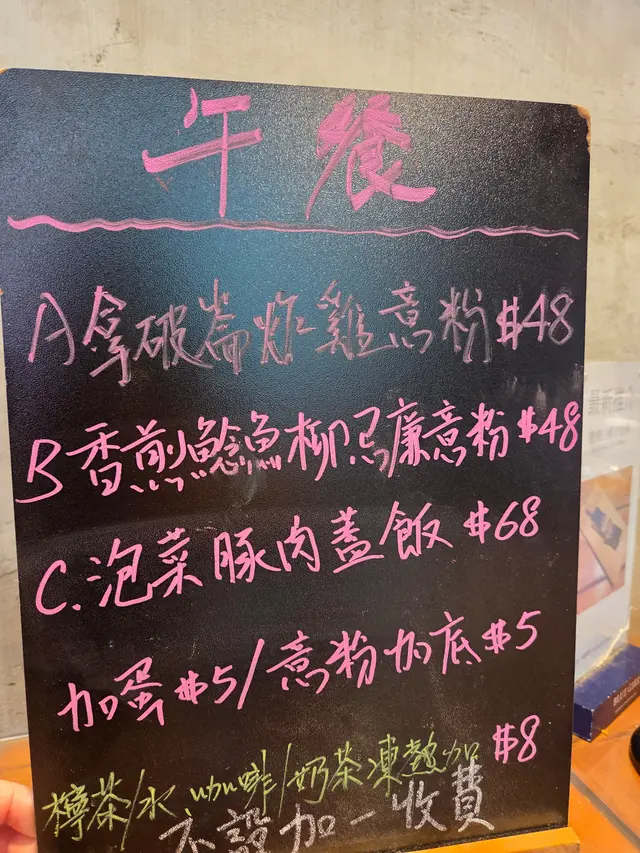 午餐
A 拿破崙炸雞意粉 $48
B 香煎鯰魚柳烏廉意粉 $48
C. 泡菜豚肉蓋飯 $68
加蛋 $5/意粉加底 $5
檸茶/水、咖啡/奶茶凍熱加 $8
不設加一收費